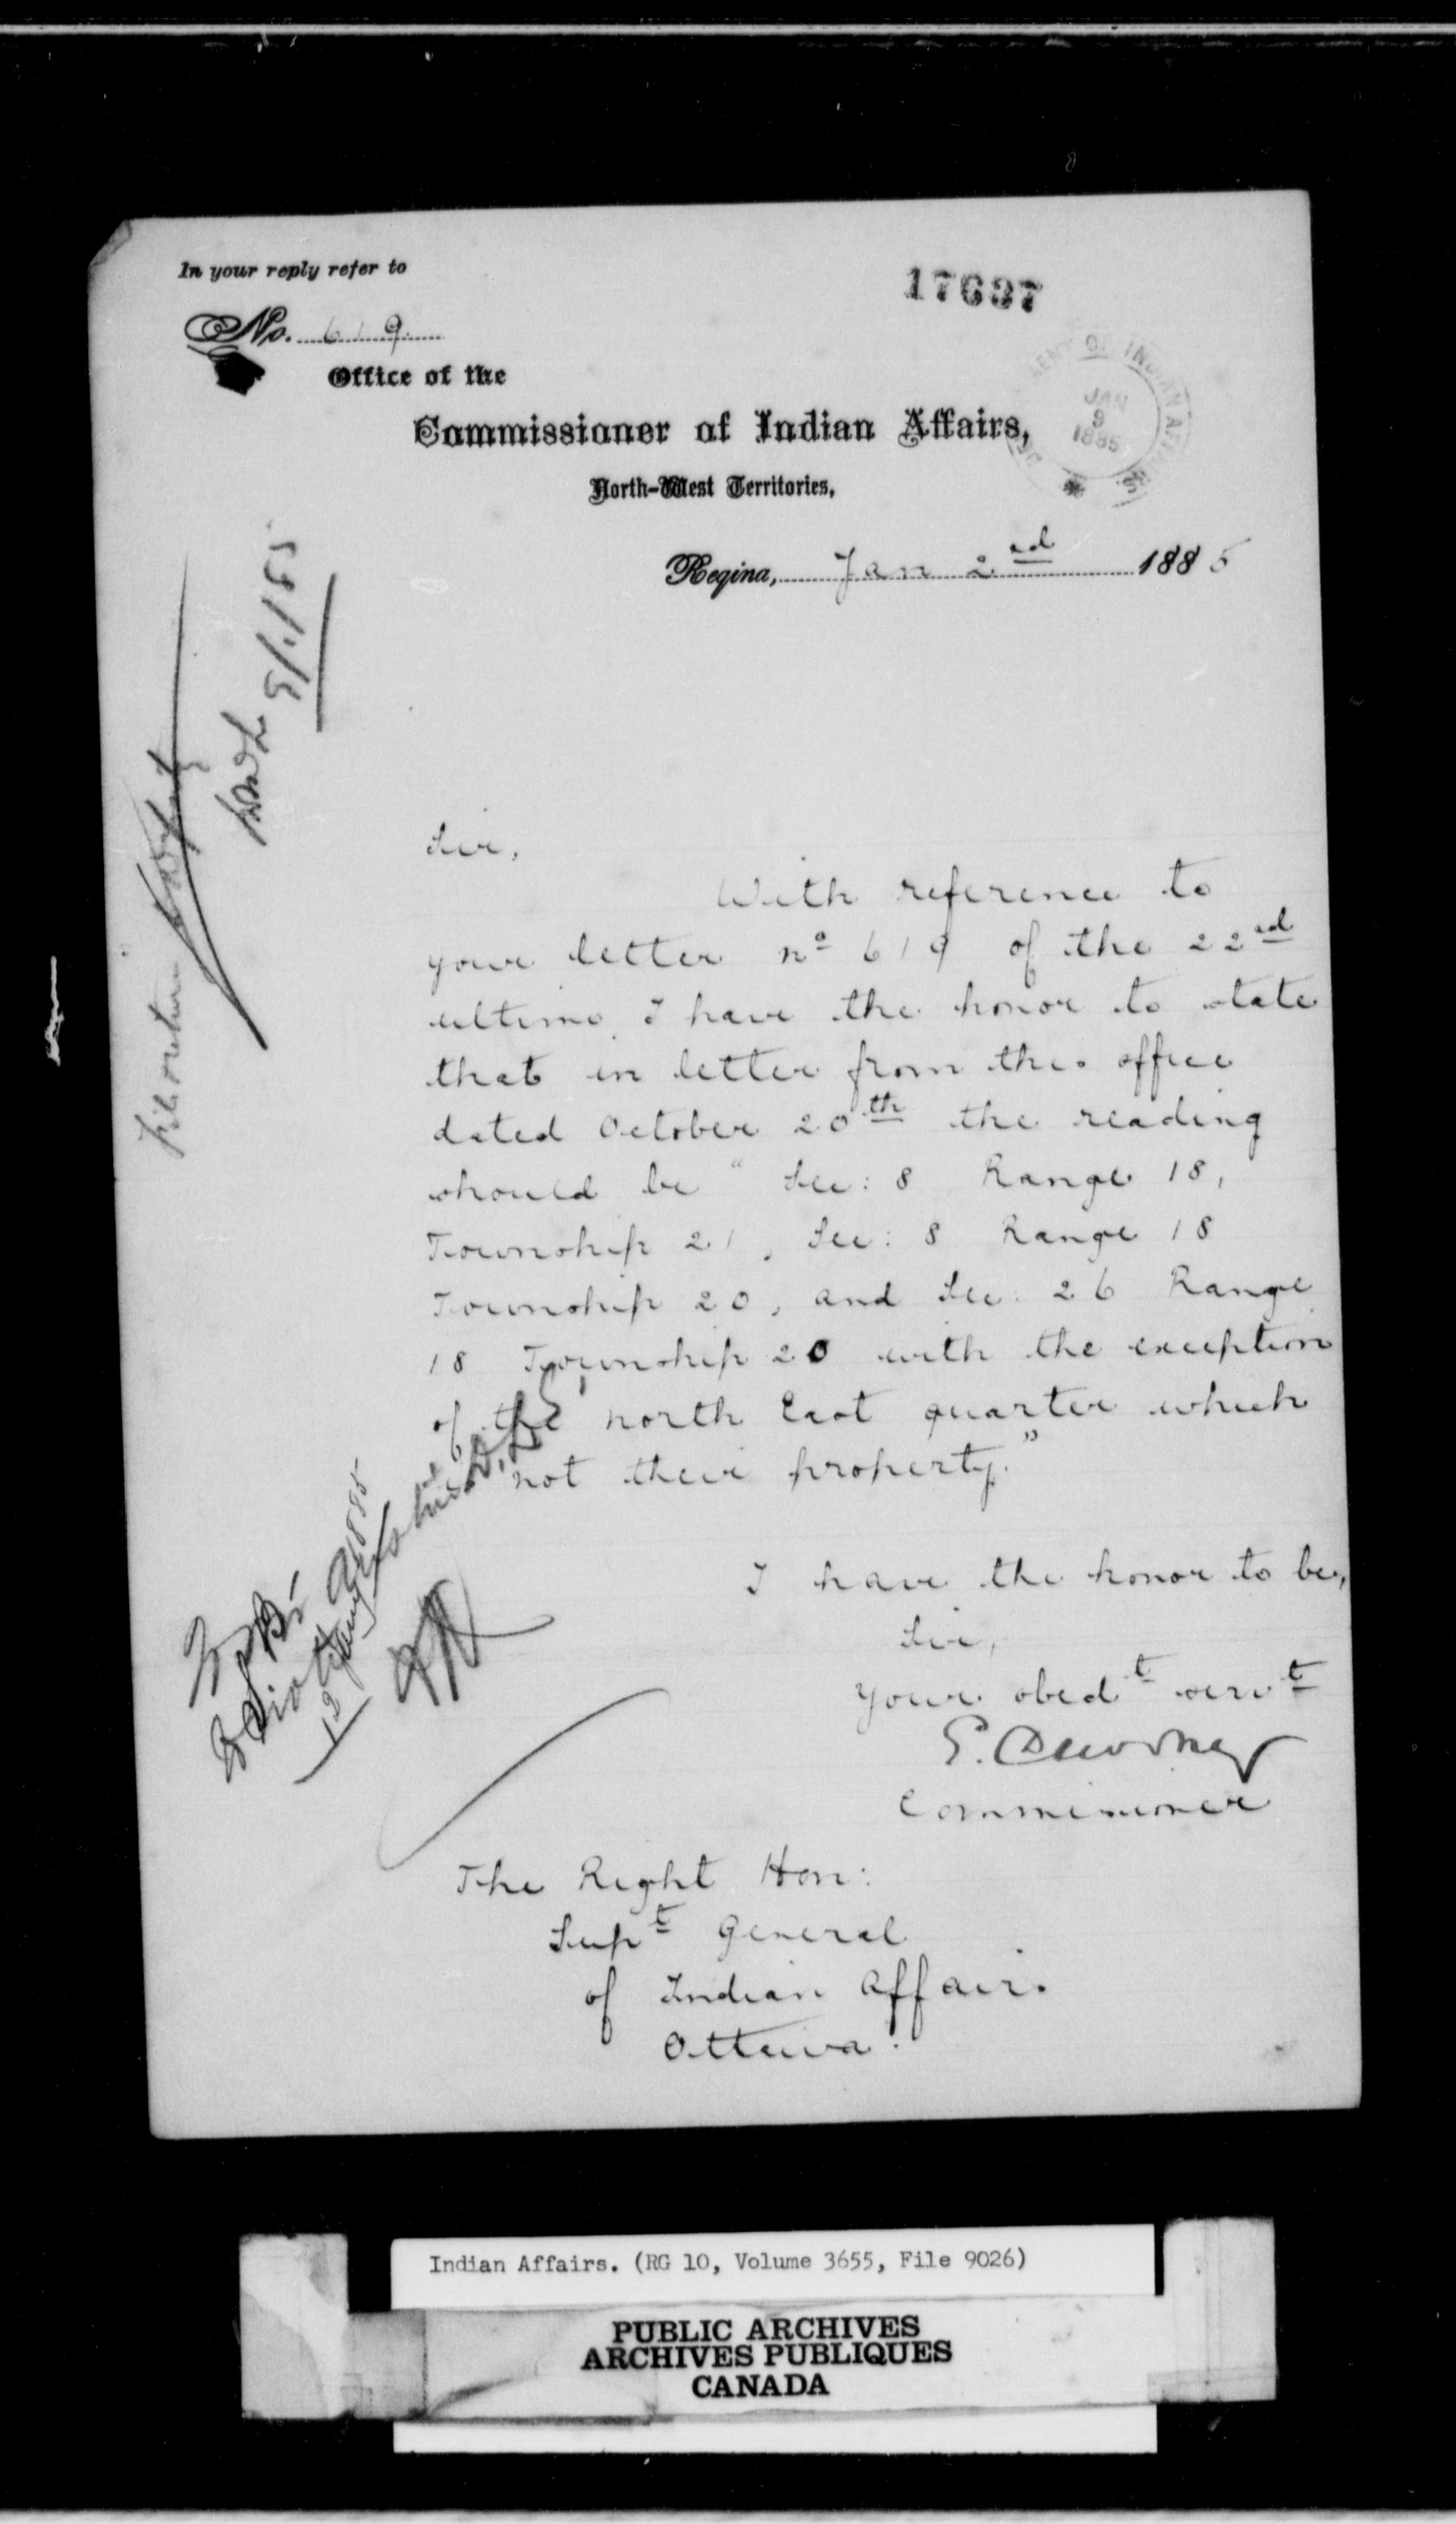 In your reply refer to
No. 619.
17697
Office of the
Commissioner of Indian Affairs,
North-West Territories,
OF INDIAN AFFAIRS
JAN
9
1885
Regina, Jan 2nd 1885
9/1/85
Sir,
With reference to
your letter no 619 of the 22nd
ultimo I have the honor to state
that in letter from this office
dated October 20th the reading
should be " Sec: 8 Range 18,
Township 21, Sec: 8 Range 18
Township 20, and Sec: 26 Range
18 Township 20 with the exception
of the north East quarter which
not their property."
I have the honor to be,
Sir,
your obedt servt
E. Dewdney
Commissioner
The Right Hon:
Supt General
of Indian Affairs
Ottawa.
Indian Affairs. (RG 10, Volume 3655, File 9026)
PUBLIC ARCHIVES
ARCHIVES PUBLIQUES
CANADA